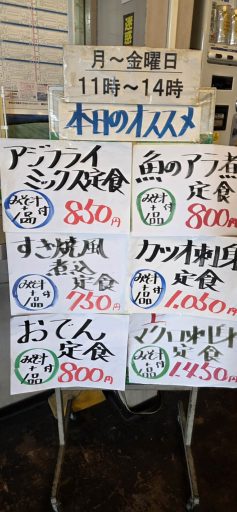 月～金曜日
11時～14時
本日のオススメ
アジフライ
ミックス定食
みそ汁
+付
1品
850円
魚のアラ煮
定食
みそ汁
+付
1品
800円
すき焼風
煮込
定食
みそ汁
+付
1品
750円
カツオ刺身
定食
みそ汁
+付
1品
1.050円
おでん
定食
みそ汁
+付
1品
800円
上
マグロ刺身
定食
みそ汁
+付
1品
1.450円